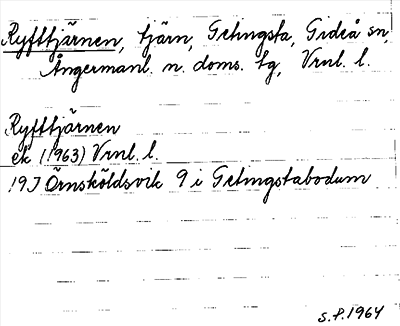 Ryfttjärnen, tjärn, Getingsta, Gideå sn,
Ångermanl. n. doms. tg, Vrnl. l.
Ryfttjärnen
ek (1963) Vrnl. l.
19J Örnsköldsvik 9 i Getingstabodum
S.P. 1964